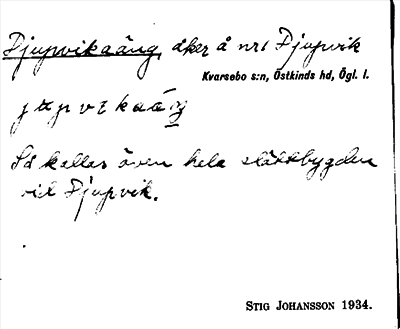 Djupvikaäng, åker å nr 1 Djupvik
Kvarsebo s:n, Östkinds hd, Ögl. l.
Så kallas även hela slättbygden
vid Djupvik.
STIG JOHANSSON 1934.